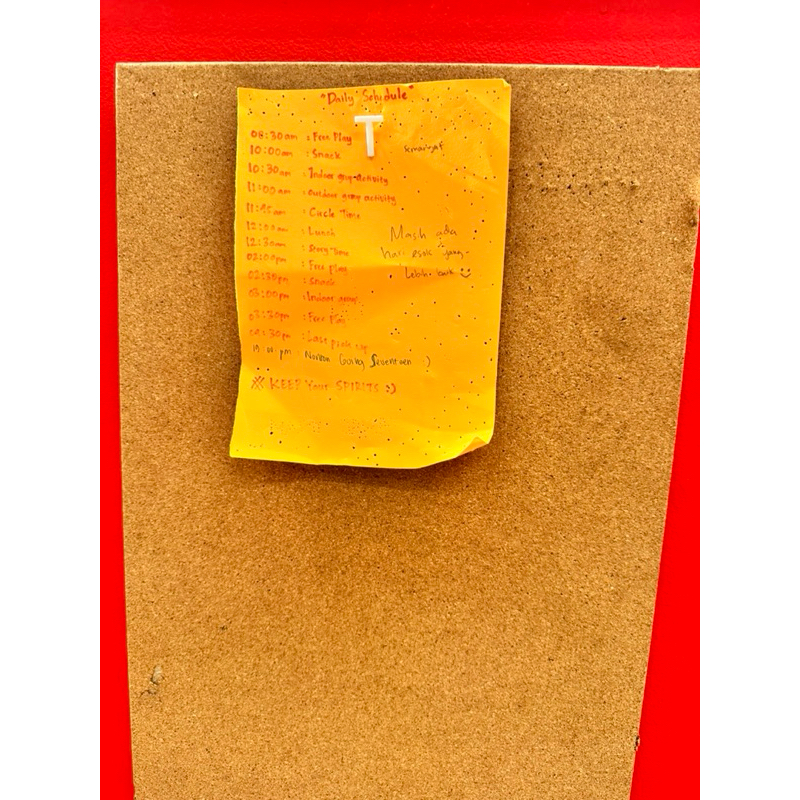 "Daily Schedule"
T
08:30am : Free Play
10:00am : Snack
10:30am : Indoor group activity
11:00am : outdoor group activity
11:45am : Circle Time
12:00am : Lunch
12:30am : Story Time
02:00pm : Free play
02:30pm : Snack
03:00pm : Indoor group
03:30pm : Free Play
04:30pm : Last pick up
pm : Nonton Going Seventeen :)
※ KEEP Your SPIRITS :)
Masih ada
hari esok yang
lebih baik